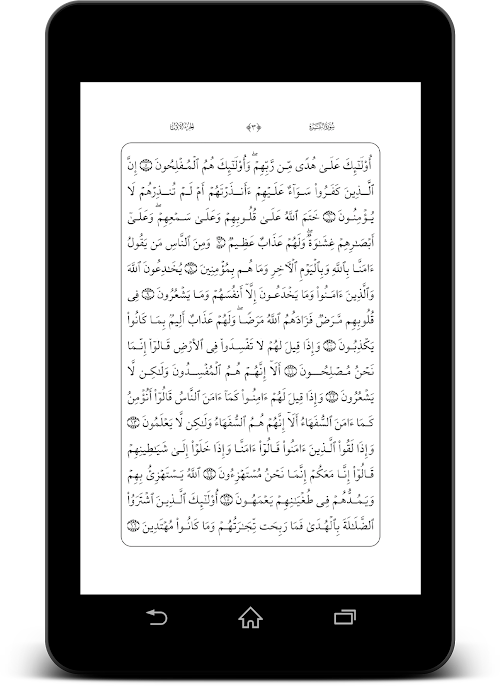 سُورَةُ البَقَرَةِ ﴿٣﴾ الجُزْءُ الأَوَّلُ
أُوْلَـٰٓئِكَ عَلَىٰ هُدًى مِّن رَّبِّهِمْ ۖ وَأُوْلَـٰٓئِكَ هُمُ ٱلْمُفْلِحُونَ ۝ إِنَّ
ٱلَّذِينَ كَفَرُوا۟ سَوَآءٌ عَلَيْهِمْ ءَأَنذَرْتَهُمْ أَمْ لَمْ تُنذِرْهُمْ لَا
يُؤْمِنُونَ ۝ خَتَمَ ٱللَّهُ عَلَىٰ قُلُوبِهِمْ وَعَلَىٰ سَمْعِهِمْ ۖ وَعَلَىٰٓ
أَبْصَـٰرِهِمْ غِشَـٰوَةٌ ۖ وَلَهُمْ عَذَابٌ عَظِيمٌ ۝ وَمِنَ ٱلنَّاسِ مَن يَقُولُ
ءَامَنَّا بِٱللَّهِ وَبِٱلْيَوْمِ ٱلْـَٔاخِرِ وَمَا هُم بِمُؤْمِنِينَ ۝ يُخَـٰدِعُونَ ٱللَّهَ
وَٱلَّذِينَ ءَامَنُوا۟ وَمَا يَخْدَعُونَ إِلَّآ أَنفُسَهُمْ وَمَا يَشْعُرُونَ ۝ فِى
قُلُوبِهِم مَّرَضٌ فَزَادَهُمُ ٱللَّهُ مَرَضًا ۖ وَلَهُمْ عَذَابٌ أَلِيمٌۢ بِمَا كَانُوا۟
يَكْذِبُونَ ۝ وَإِذَا قِيلَ لَهُمْ لَا تُفْسِدُوا۟ فِى ٱلْأَرْضِ قَالُوٓا۟ إِنَّمَا
نَحْنُ مُصْلِحُونَ ۝ أَلَآ إِنَّهُمْ هُمُ ٱلْمُفْسِدُونَ وَلَـٰكِن لَّا
يَشْعُرُونَ ۝ وَإِذَا قِيلَ لَهُمْ ءَامِنُوا۟ كَمَآ ءَامَنَ ٱلنَّاسُ قَالُوٓا۟ أَنُؤْمِنُ
كَمَآ ءَامَنَ ٱلسُّفَهَآءُ أَلَآ إِنَّهُمْ هُمُ ٱلسُّفَهَآءُ وَلَـٰكِن لَّا يَعْلَمُونَ ۝
وَإِذَا لَقُوا۟ ٱلَّذِينَ ءَامَنُوا۟ قَالُوٓا۟ ءَامَنَّا وَإِذَا خَلَوْا۟ إِلَىٰ شَيَـٰطِينِهِمْ
قَالُوٓا۟ إِنَّا مَعَكُمْ إِنَّمَا نَحْنُ مُسْتَهْزِءُونَ ۝ ٱللَّهُ يَسْتَهْزِئُ بِهِمْ
وَيَمُدُّهُمْ فِى طُغْيَـٰنِهِمْ يَعْمَهُونَ ۝ أُوْلَـٰٓئِكَ ٱلَّذِينَ ٱشْتَرَوُا۟
ٱلضَّلَـٰلَةَ بِٱلْهُدَىٰ فَمَا رَبِحَت تِّجَـٰرَتُهُمْ وَمَا كَانُوا۟ مُهْتَدِينَ ۝